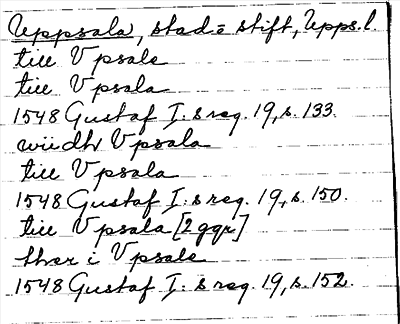 Uppsala, stad o stift, Upps. l.
till Vpsale
till Vpsala
1548 Gustaf I:s reg. 19, s. 133.
widh Vpsala
till Vpsala
1548 Gustaf I:s reg. 19, s. 150.
till Vpsala [2 ggr]
ther i Vpsale
1548 Gustaf I:s reg. 19, s. 152.